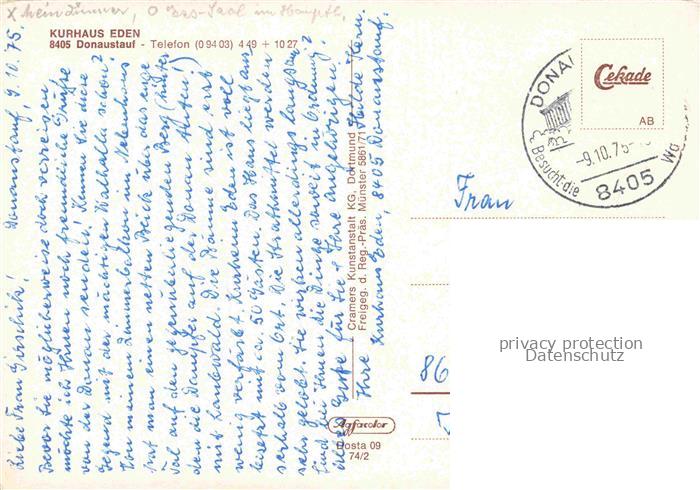 X Mein Zimmer, O Ess-Saal im Haupth.
KURHAUS EDEN
8405 Donaustauf - Telefon (0 94 03) 4 49 + 10 27
Donaustauf, 9.10.75.
Liebe Frau Girschik!
Bevor Sie möglicherweise doch verreisen
möchte ich Ihnen noch freundliche Grüße
von der Donau senden! Kennen Sie die
Gegend mit der mächtigen Walhalla schon?
Von meinem Zimmerbalkon im Nebenhaus
hat man einen netten Blick über das enge
Tal auf den gegenüberliegenden Berg (hinter
dem die Dampfer auf der Donau tuten!)
mit Laubwald. Die Bäume sind erst
wenig verfärbt. Kurheim Eden ist voll
besetzt mit ca 50 Gästen. Das Haus liegt aus-
serhalb vom Ort. Die Kräftmittel werden
sehr gelobt. Sie wirken allerdings langsam?
Sind bei Ihnen die Dinge soweit in Ordnung?
Alles Gute für Sie + Ihre Angehörigen.
Ihre Hilde Kern.
Kurhaus Eden, 8405 Donaustauf.
Cramers Kunstanstalt KG, Dortmund
Freigeg. d. Reg.-Präs. Münster 5861/71
Agfacolor
Dosta 09
74/2
Cekade
AB
DONAU
-9.10.75-
Besucht die
Wa
8405
Frau
86
privacy protection
Datenschutz